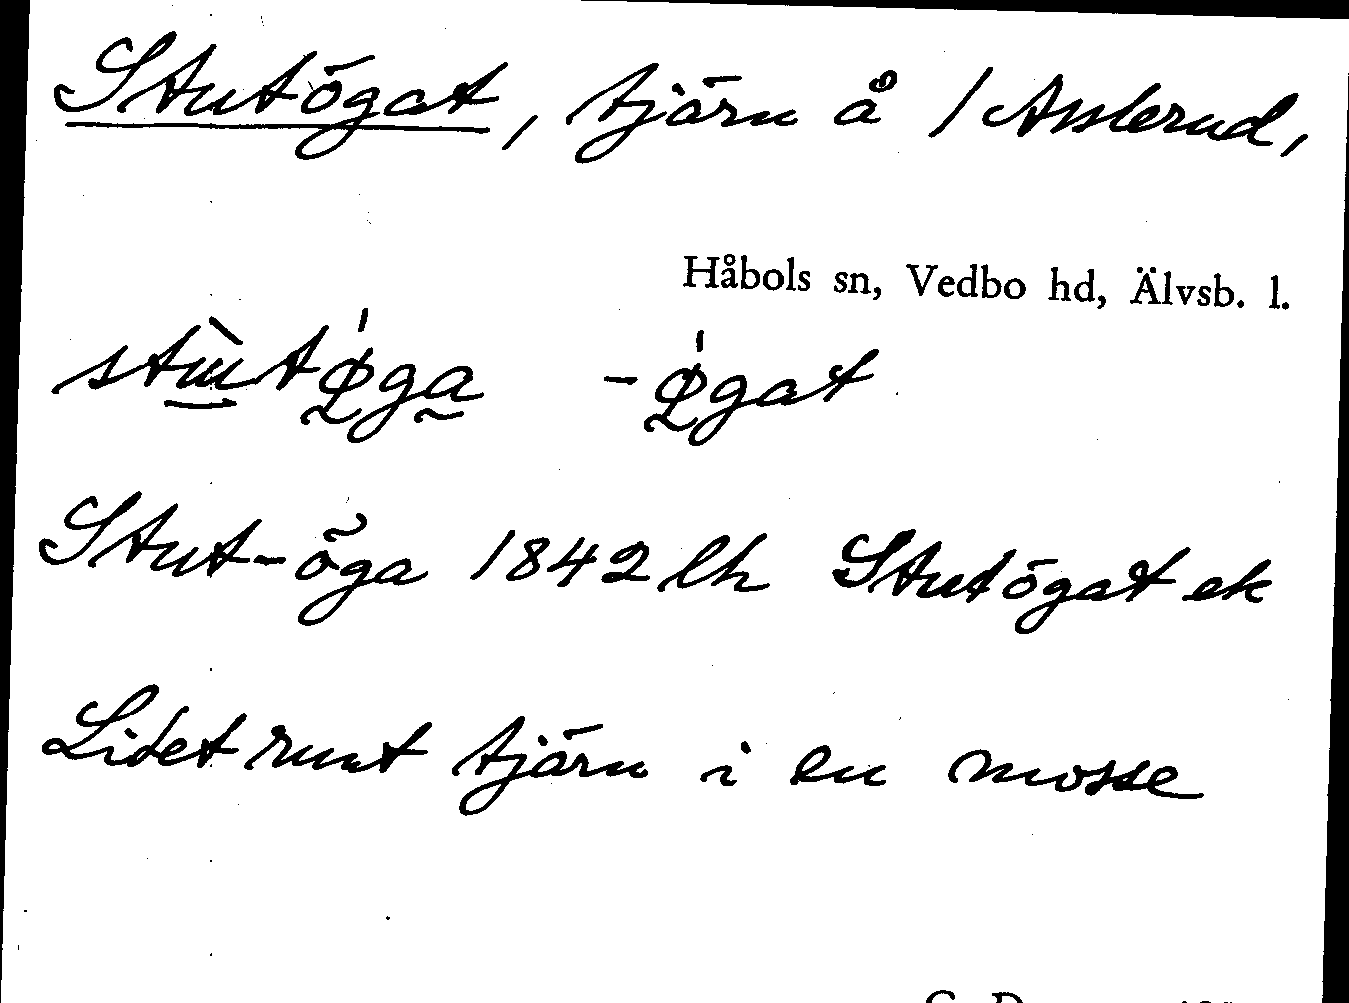 Stutögat, tjärn å 1 Asslerud,
Håbols sn, Vedbo hd, Älvsb. l.
-ø̨gat
Stut-öga 1842 lh Stutögat ek
Litet runt tjärn i en mosse